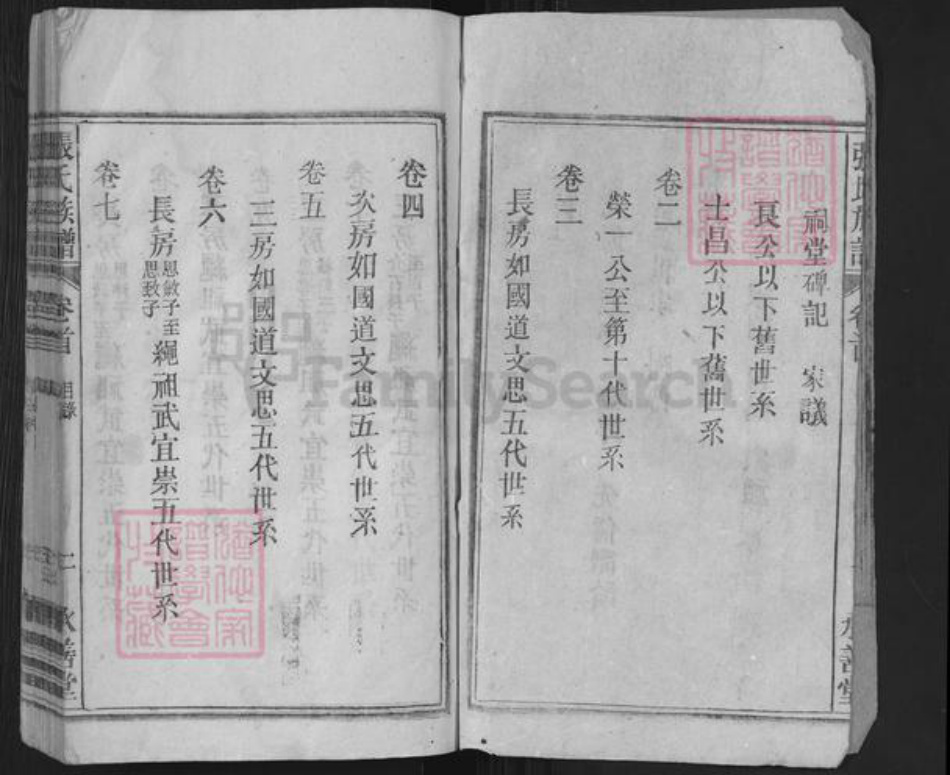 張氏族譜 卷首
承善堂
祠堂碑記 家議
良公以下舊世系
士昌公以下舊世系
卷二
榮一公至第十代世系
卷三
長房如國道文思五代世系
卷四
次房如國道文思五代世系
卷五
三房如國道文思五代世系
卷六
長房思敛子至思致子繩祖武宜崇五代世系
卷七
張氏族譜 卷首 目錄 二 承善堂
FamilySearch